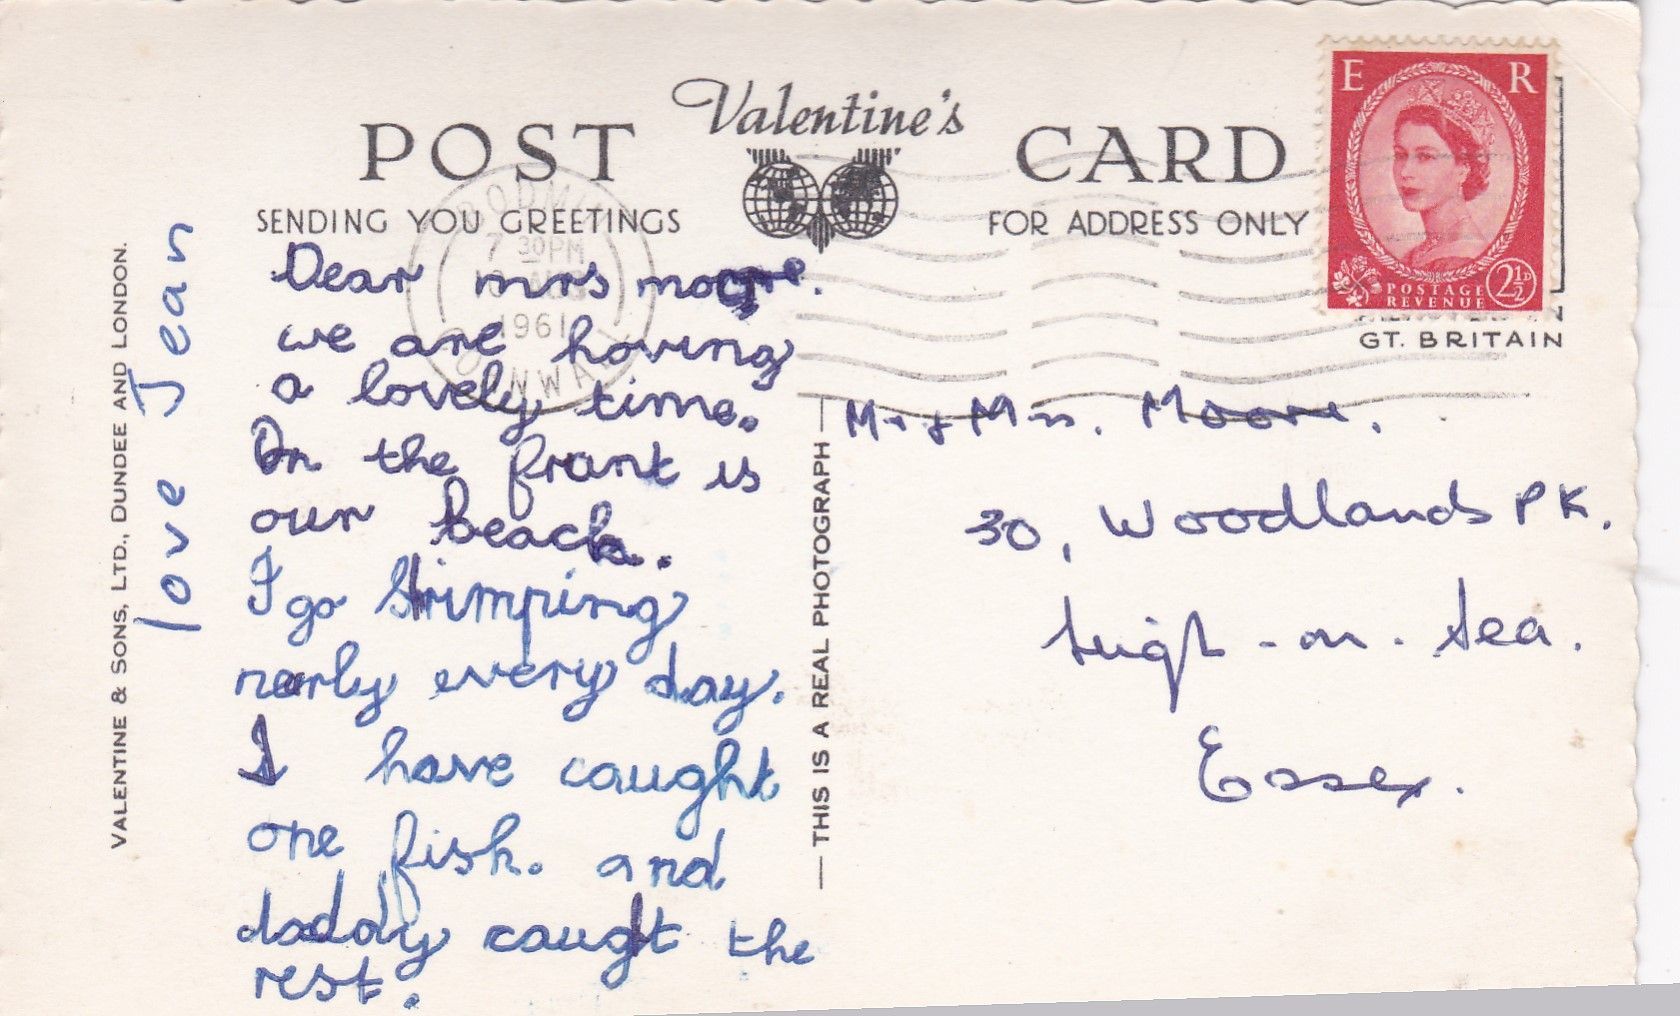 Valentine's
POST CARD
SENDING YOU GREETINGS
FOR ADDRESS ONLY
E R
POSTAGE
REVENUE
2½D
GT. BRITAIN
BODMIN
7 30PM
AUG
1961
CORNWALL
Dear mrs moore.
we are hoving
a lovely time.
On the front is
our beach.
I go shrimping
nearly every day.
I have caught
one fish. and
daddy caught the
rest.
love Jean
Mr & Mrs. Moore.
30, Woodlands PK.
Leigh-on-Sea.
Essex.
VALENTINE & SONS, LTD., DUNDEE AND LONDON.
THIS IS A REAL PHOTOGRAPH